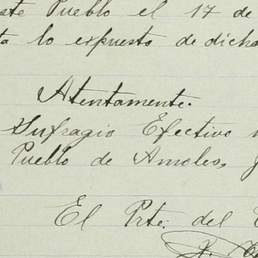 este Pueblo el 17 de
ta lo expuesto de dicho
Atentamente.
Sufragio Efectivo
Pueblo de Amoles,
El Prte. del